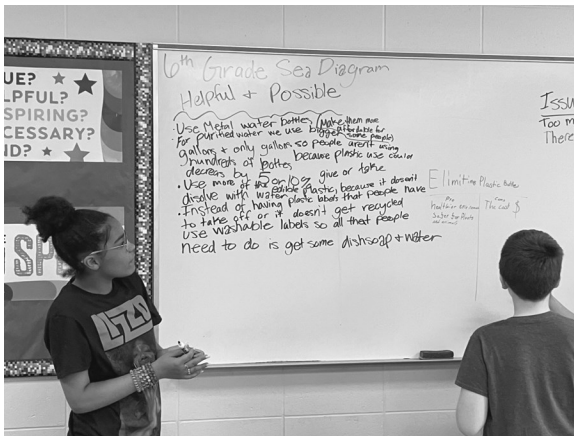 UE?
LPFUL?
SPIRING?
CESSARY?
ND?
SP
LIZZO
6th Grade Sea Diagram
Helpful + Possible
• Use Metal water bottles (Make them more affordable for some people)
• For purified water we use bigger
gallons + only gallons so people aren't using
hundreds of bottles because plastic use could
decreas by 5 or 10% give or take
• Use more of the edible plastic, because it doesn't
disolve with water
• Instead of having plastic labels that people have
to take off or it doesn't get recycled
use washable labels so all that people
need to do is get some dishsoap + water
Elimiting Plastic Bottles
Pro
Cons
The cost $
Issu
Too m
There